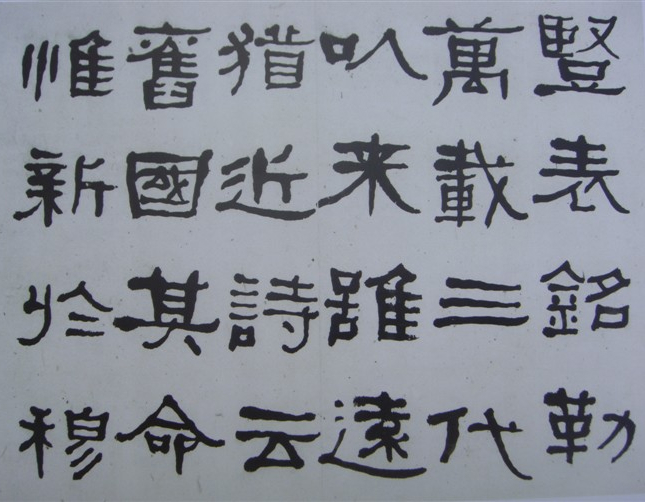 豎表銘勒
萬載三代
以来雖遠
猶近詩云
舊國其命
惟新於穆